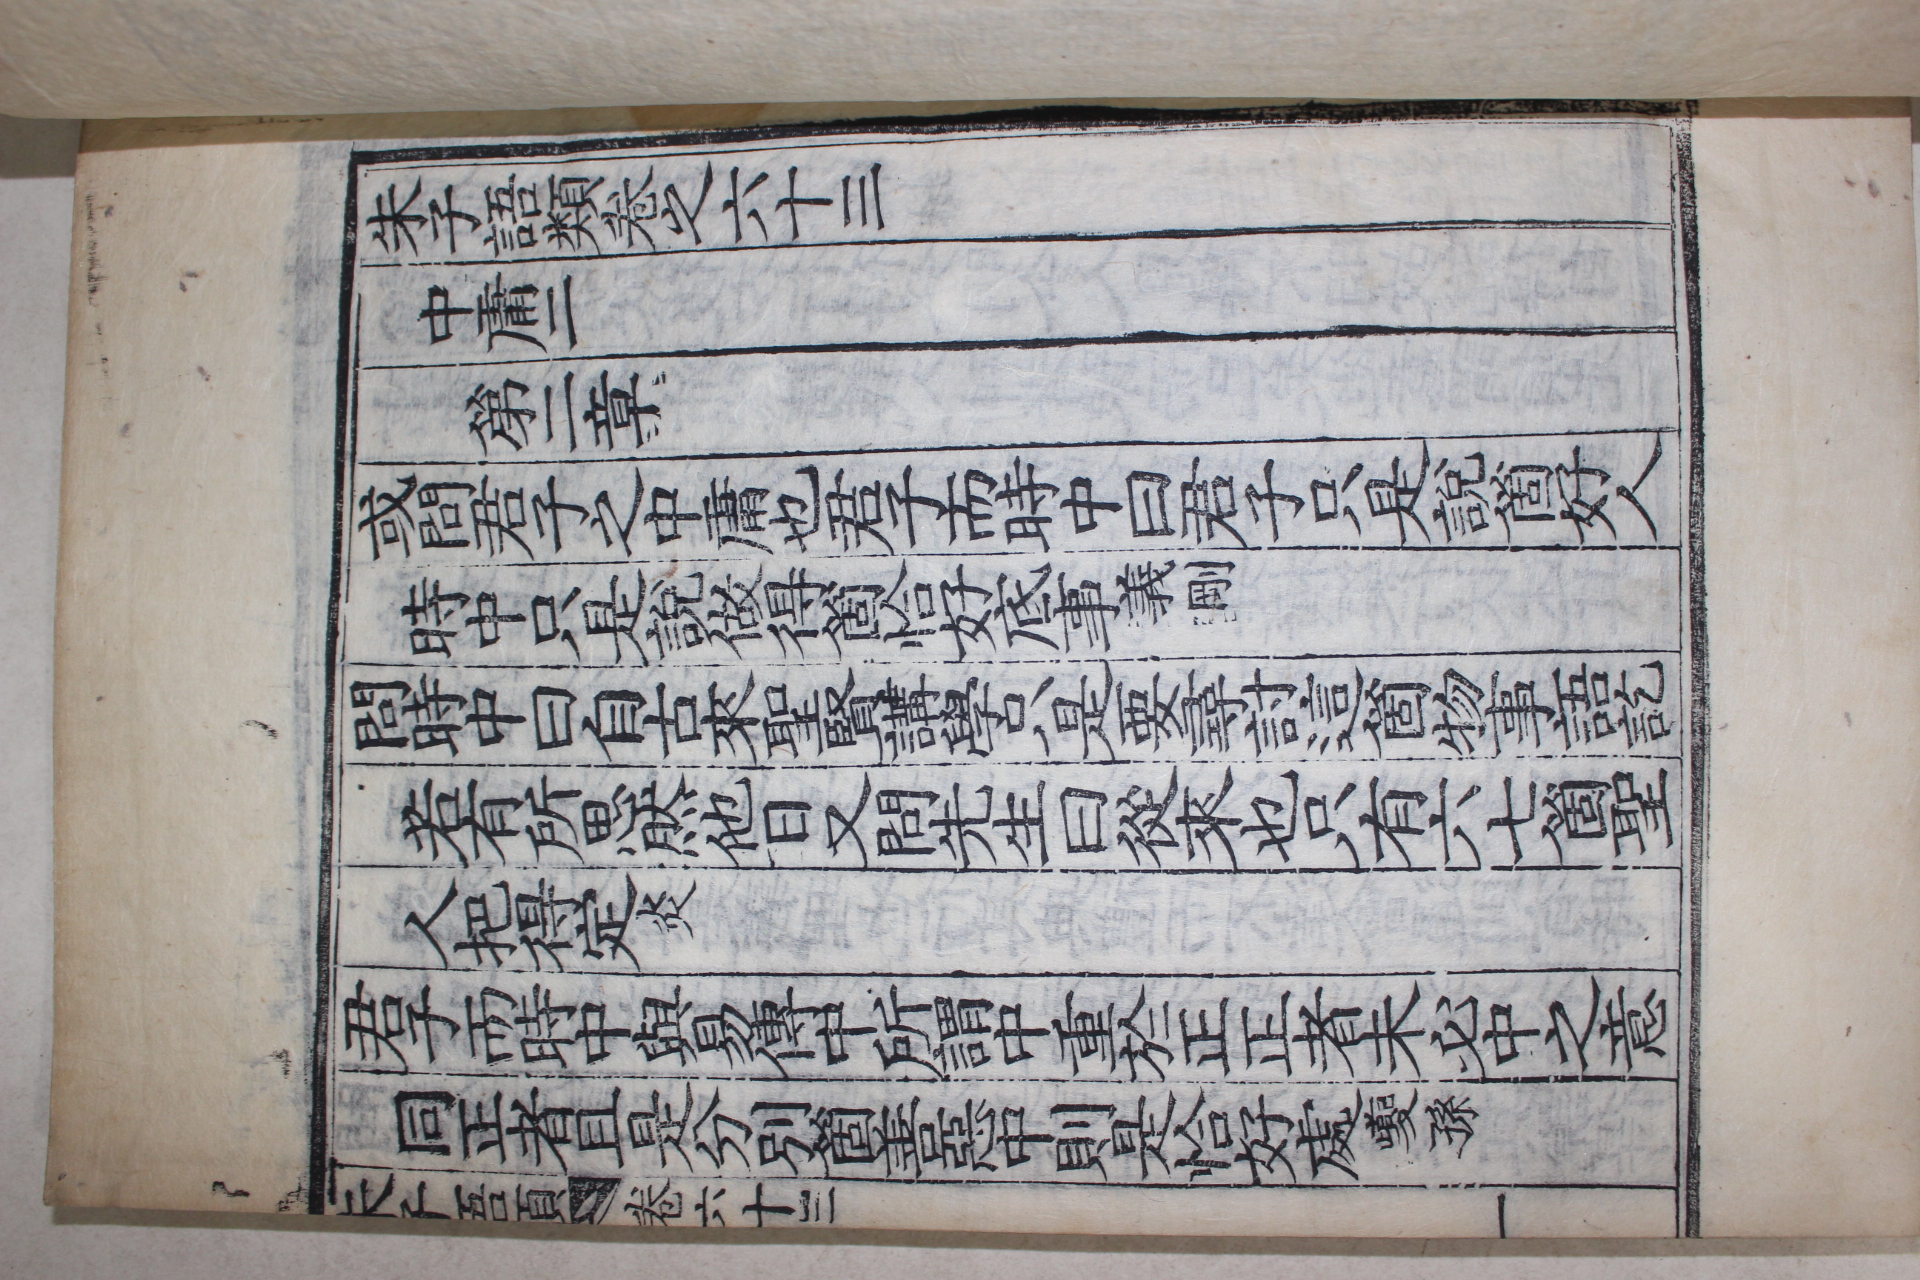 朱子語類卷之六十三
中庸二
第二章
或問君子之中庸也君子而時中曰君子只是說箇好人
時中只是說做得箇恰好底事義剛
問時中曰自古來聖賢講學只是要尋討這箇物事語訖
若有所思然他日又問先生曰從來也只有六七箇聖
人把得定炎
君子而時中與易傳中所謂中重於正正者未必中之意
同正者且是分別箇善惡中則是恰好處夔孫
朱子語類 卷六十三 一